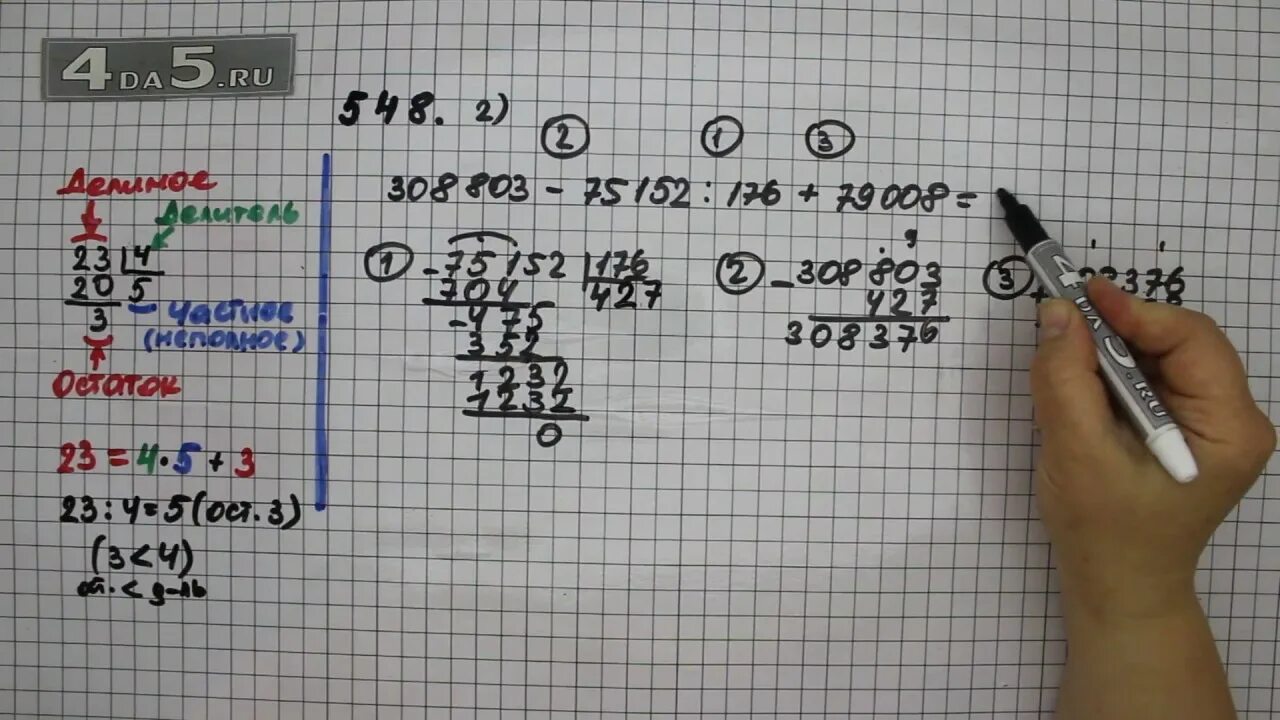 4DA5.RU
548. 2)
2 1 3
308803 - 75152 : 176 + 79008 =
Делимое
Делитель
23 4
20 5
3
частное
(неполное)
Остаток
23 = 4 · 5 + 3
23 : 4 = 5 (ост. 3)
(3 < 4)
ост. < д-ль
1 - 75152 176
704 427
- 475
352
1232
1232
0
9
2 - 308803
427
308376
3 + 376
4DA5.RU